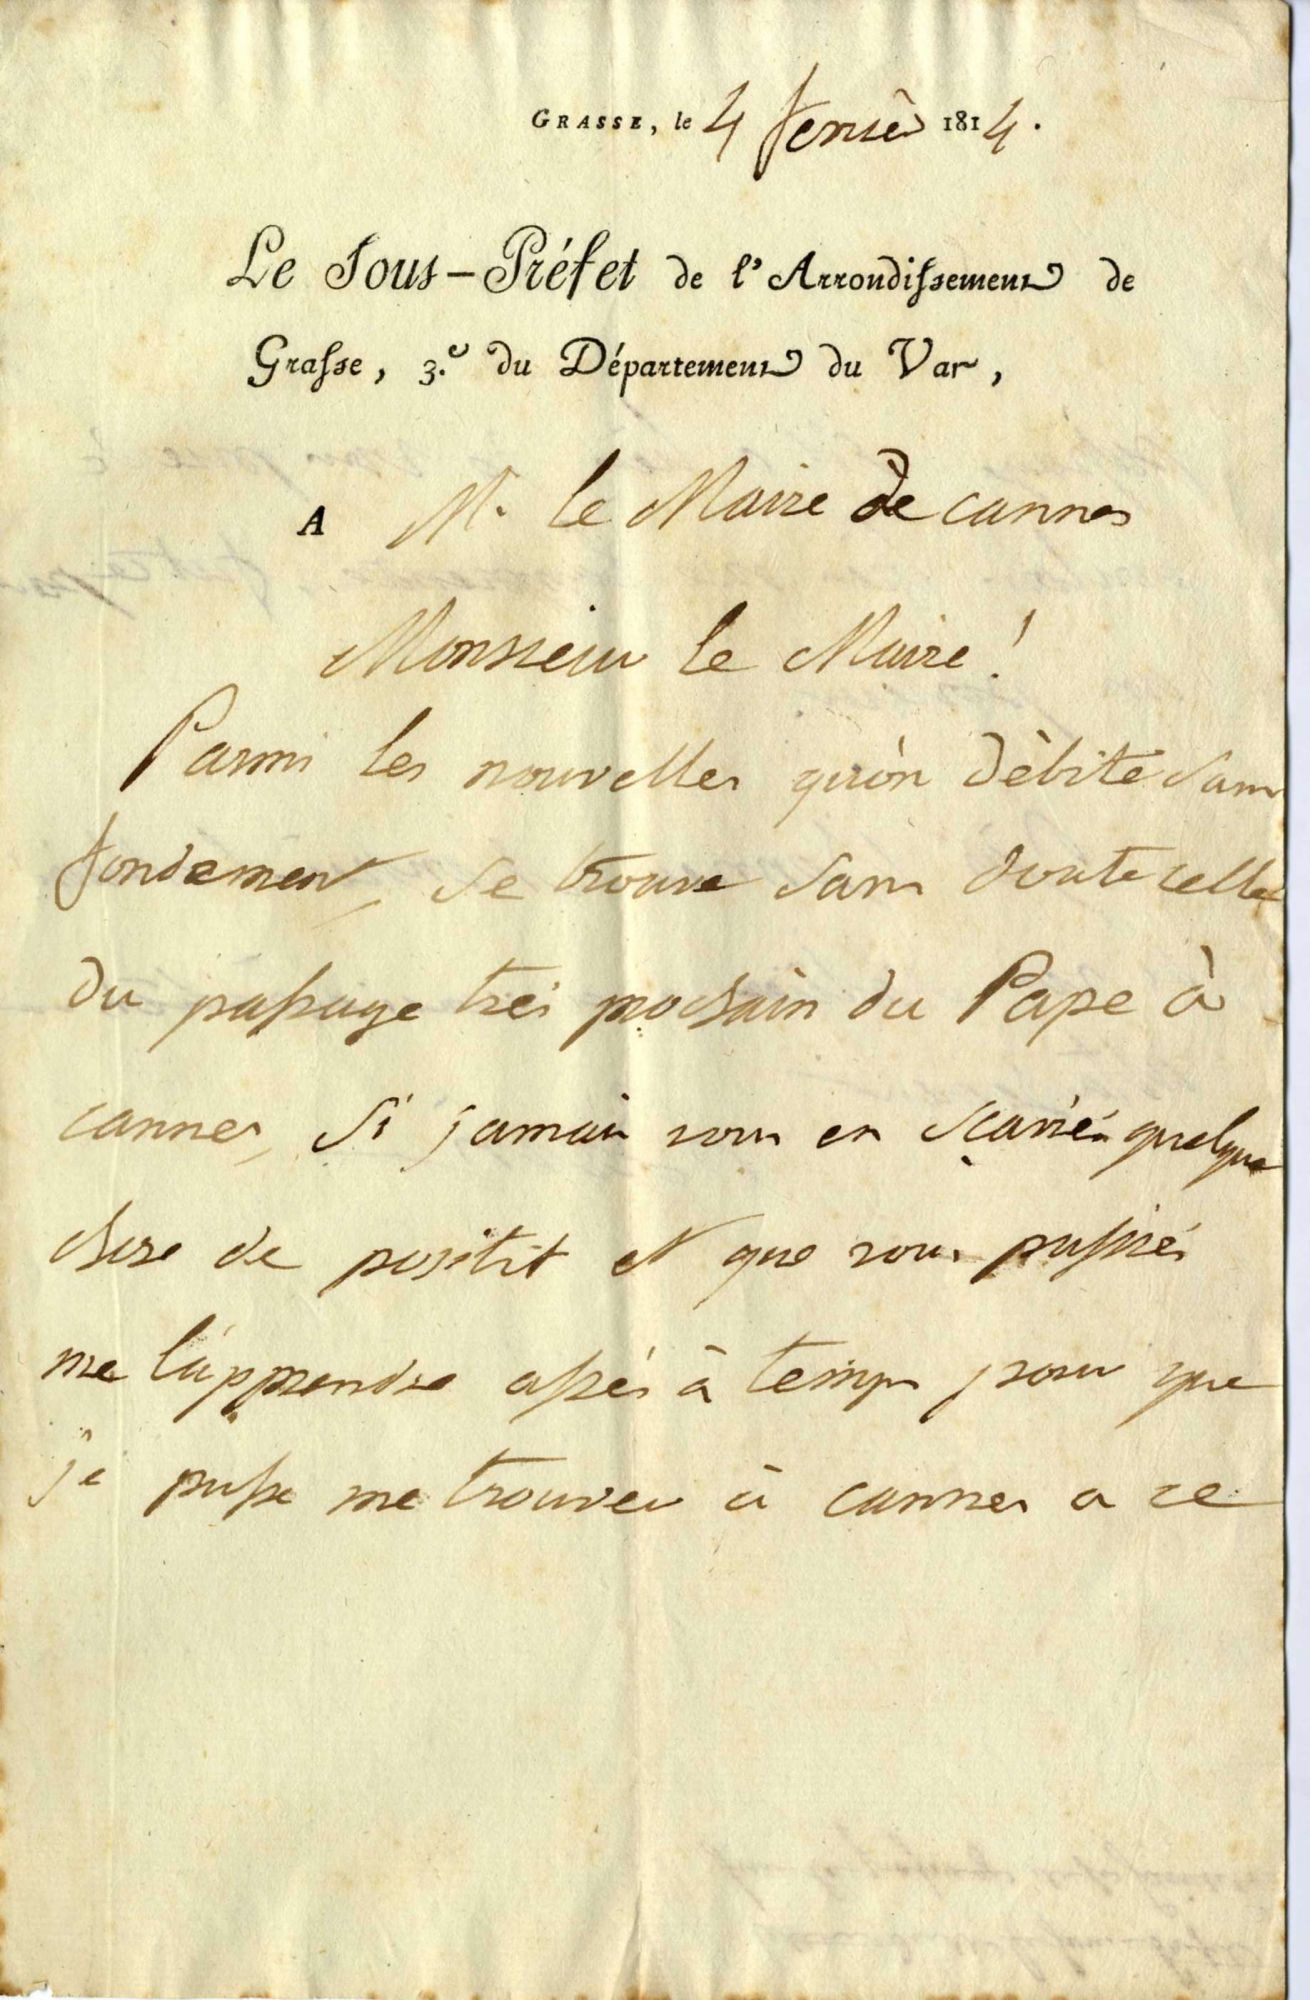 GRASSE, le 4 fevrier 1814.
Le Sous-Préfet de l'Arrondissement de
Grasse, 3.e du Département du Var,
A M. le Maire de cannes
Monsieur le Maire!
Parmi les nouvelles qu'on débite sans
fondement, se trouve sans doute celle
du passage trés prochain du Pape à
cannes, si jamais vous en sçaviés quelque
chose de positif et que vous pussiés
me l'apprendre assés à temps pour que
je pusse me trouver à cannes a ce